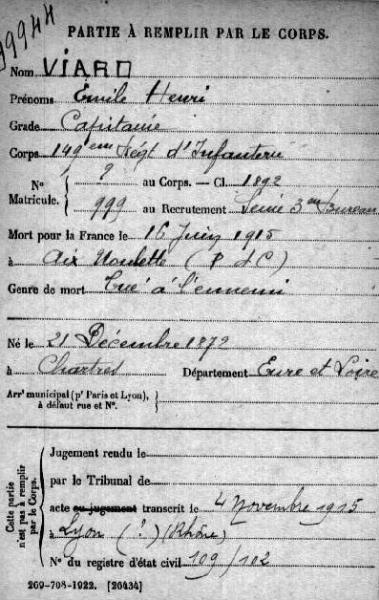 99944
PARTIE À REMPLIR PAR LE CORPS.
Nom VIARD
Prénoms Émile Henri
Grade Capitaine
Corps 149ème Régt d'Infanterie
N° Matricule. { ? au Corps. — Cl. 1892
999 au Recrutement Seine 3me Bureau
Mort pour la France le 16 Juin 1915
à Aix Noulette (P d C)
Genre de mort Tué à l'ennemi
Né le 21 Décembre 1872
à Chartres Département Eure et Loire
Arrt municipal (pr Paris et Lyon), à défaut rue et N°.
Cette partie n'est pas à remplir par le Corps.
Jugement rendu le
par le Tribunal de
acte ou jugement transcrit le 4 Novembre 1915
à Lyon (?) (Rhône)
N° du registre d'état civil 109/102
269-708-1922. [26434]